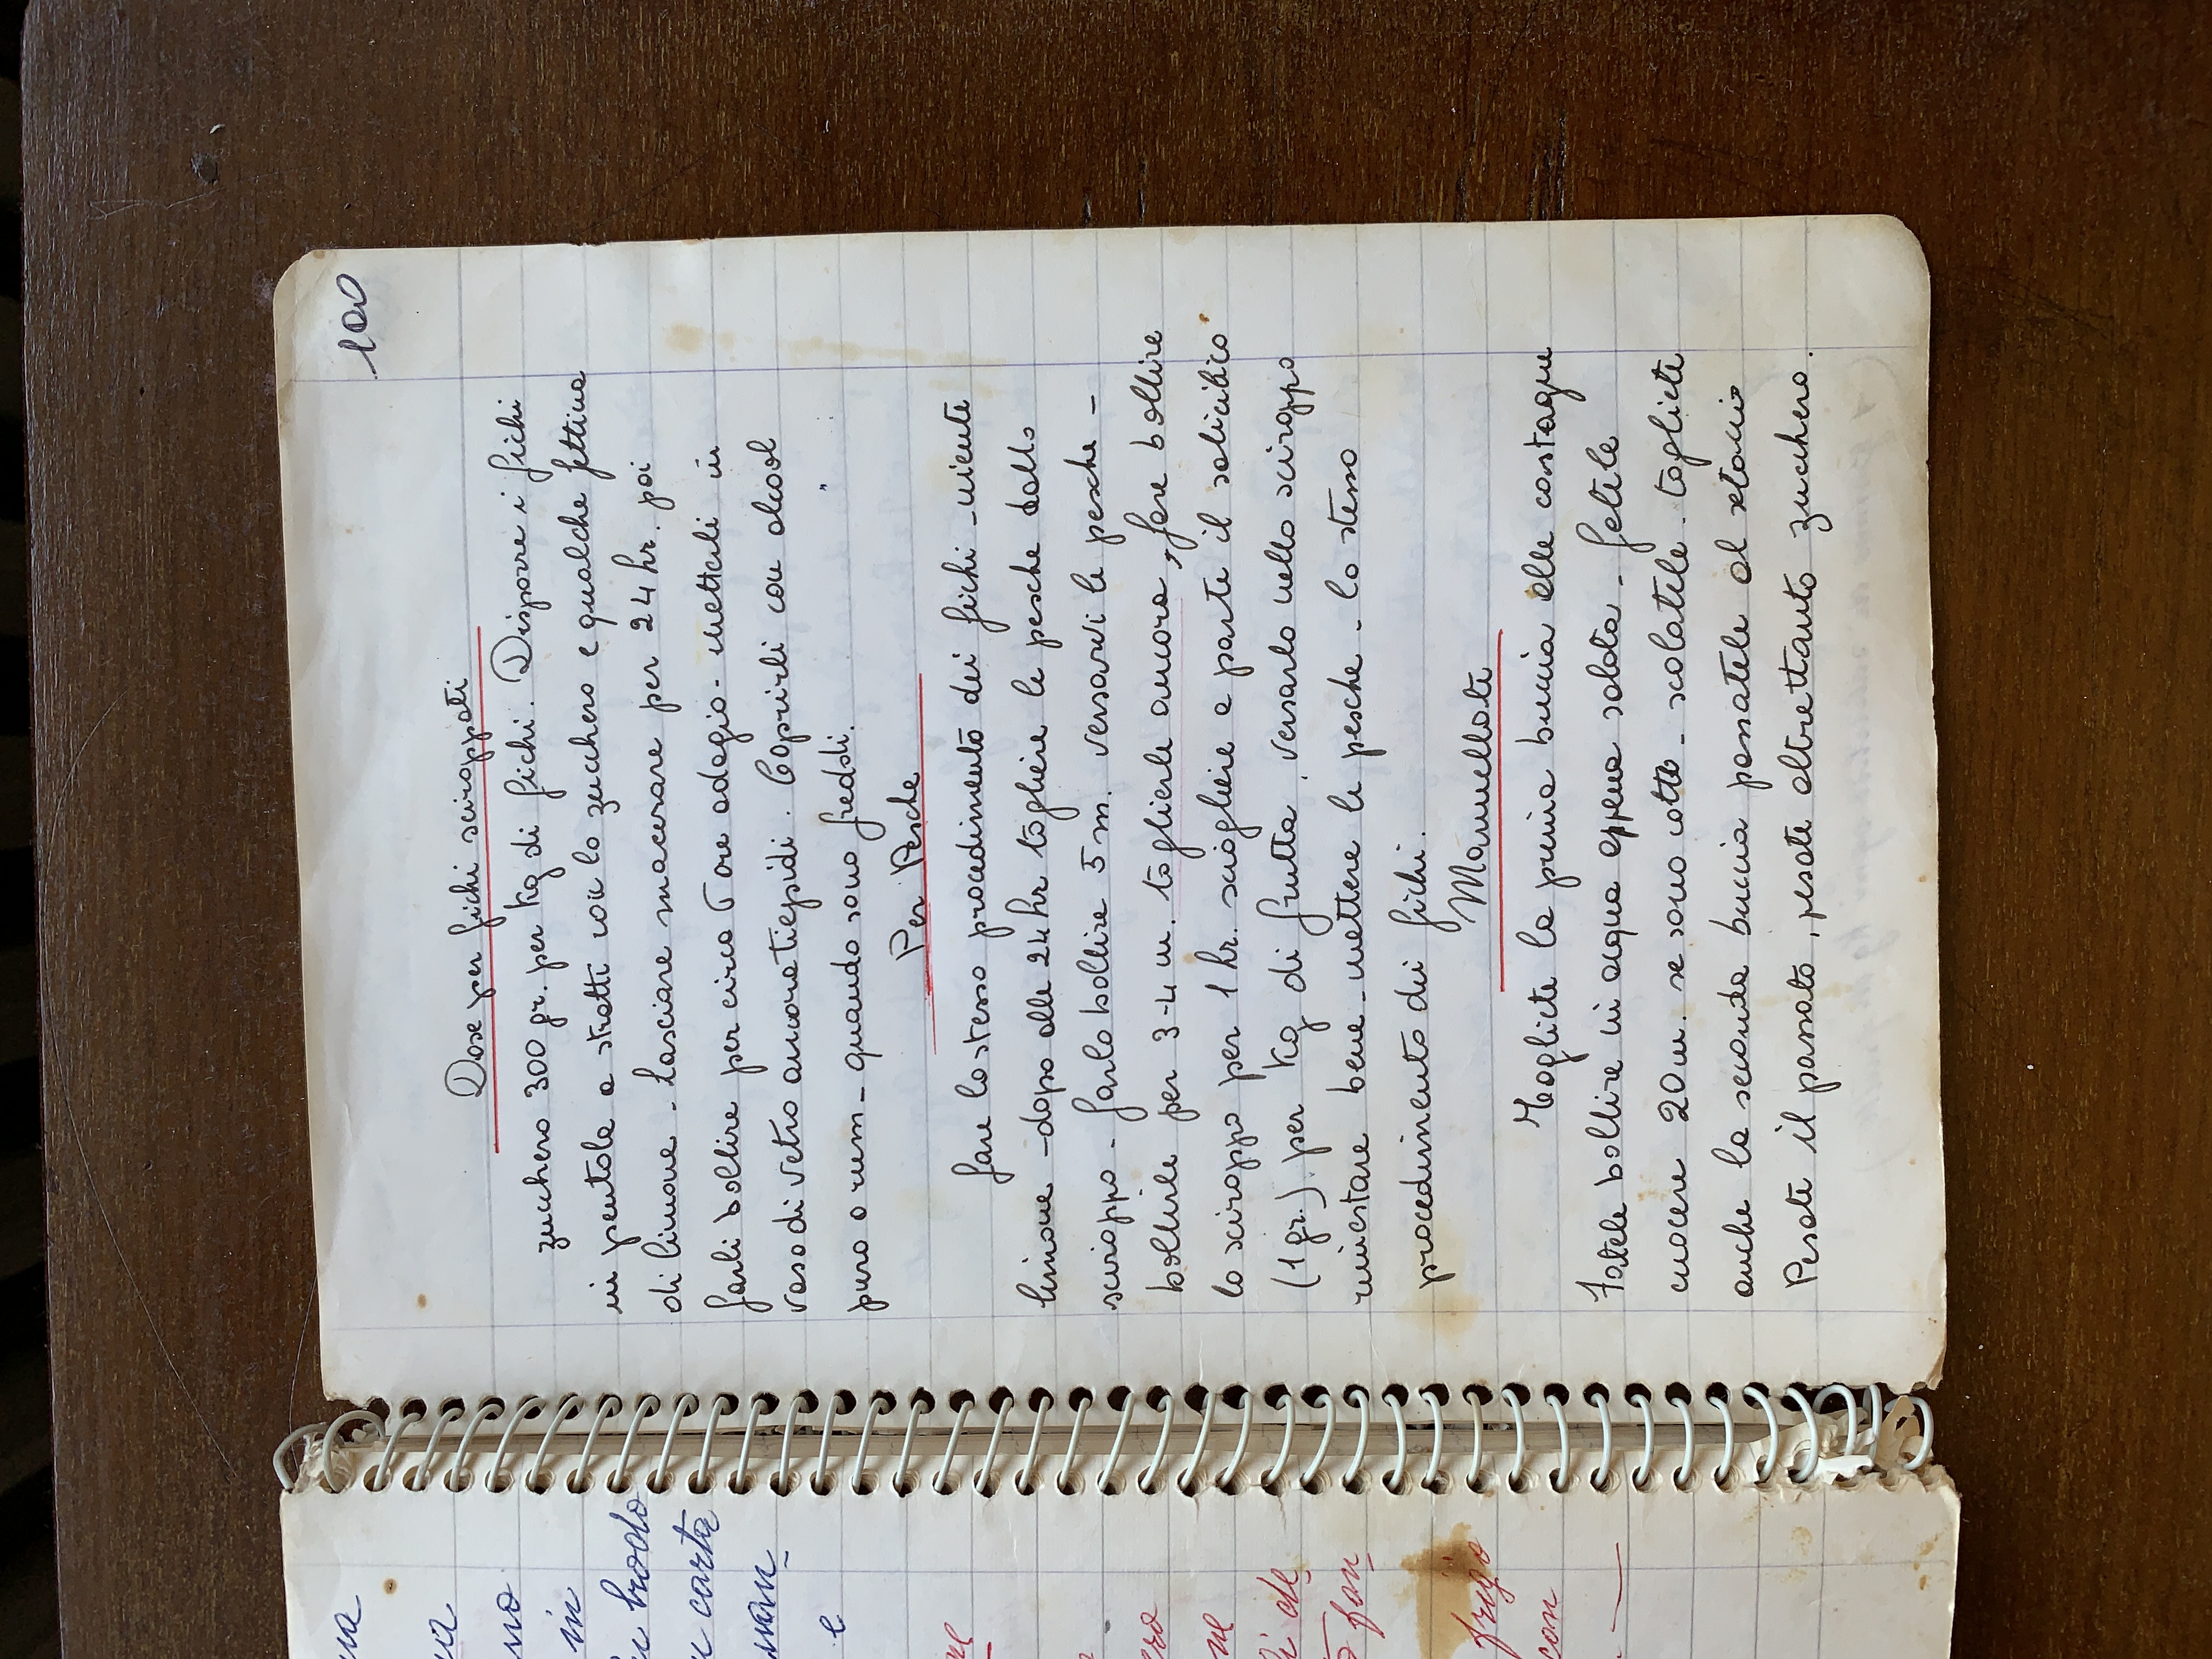 ua
ua
uo
in
brodo
carta
uan-
e
ne
ero
ne
li de-
fon-
frigo
con
100
Dose per fichi sciroppati
zucchero 300 gr. per Kg di fichi. Disporre i fichi
in pentola a stratti con lo zucchero e qualche fettina
di limone - Lasciare macerare per 24 hr. poi
farli bollire per circa ore adagio - metterli in
vaso di vetro ancora tiepidi. Coprirli con alcool
puro o rum - quando sono freddi.
Per Pesche
fare lo stesso procedimento dei fichi - niente
limone - dopo alle 24 hr togliere le pesche dallo
sciroppo - farlo bollire 5 m. versarvi le pesche -
bollirle per 3-4 m. toglierle ancora, fare bollire
lo sciroppo per 1 hr. sciogliere a parte il salicilico
(1 gr.) per Kg di frutta, versarlo nello sciroppo
rimestare bene - mettere le pesche - lo stesso
procedimento dei fichi.
Togliete la prima buccia alle castagne
Fatele bollire in acqua appena salata - fatele
cuocere 20 m. se sono cotte - scolatele - togliete
anche la seconda buccia passatele al setaccio
Pesate il passato, pesate altrettanto zucchero.